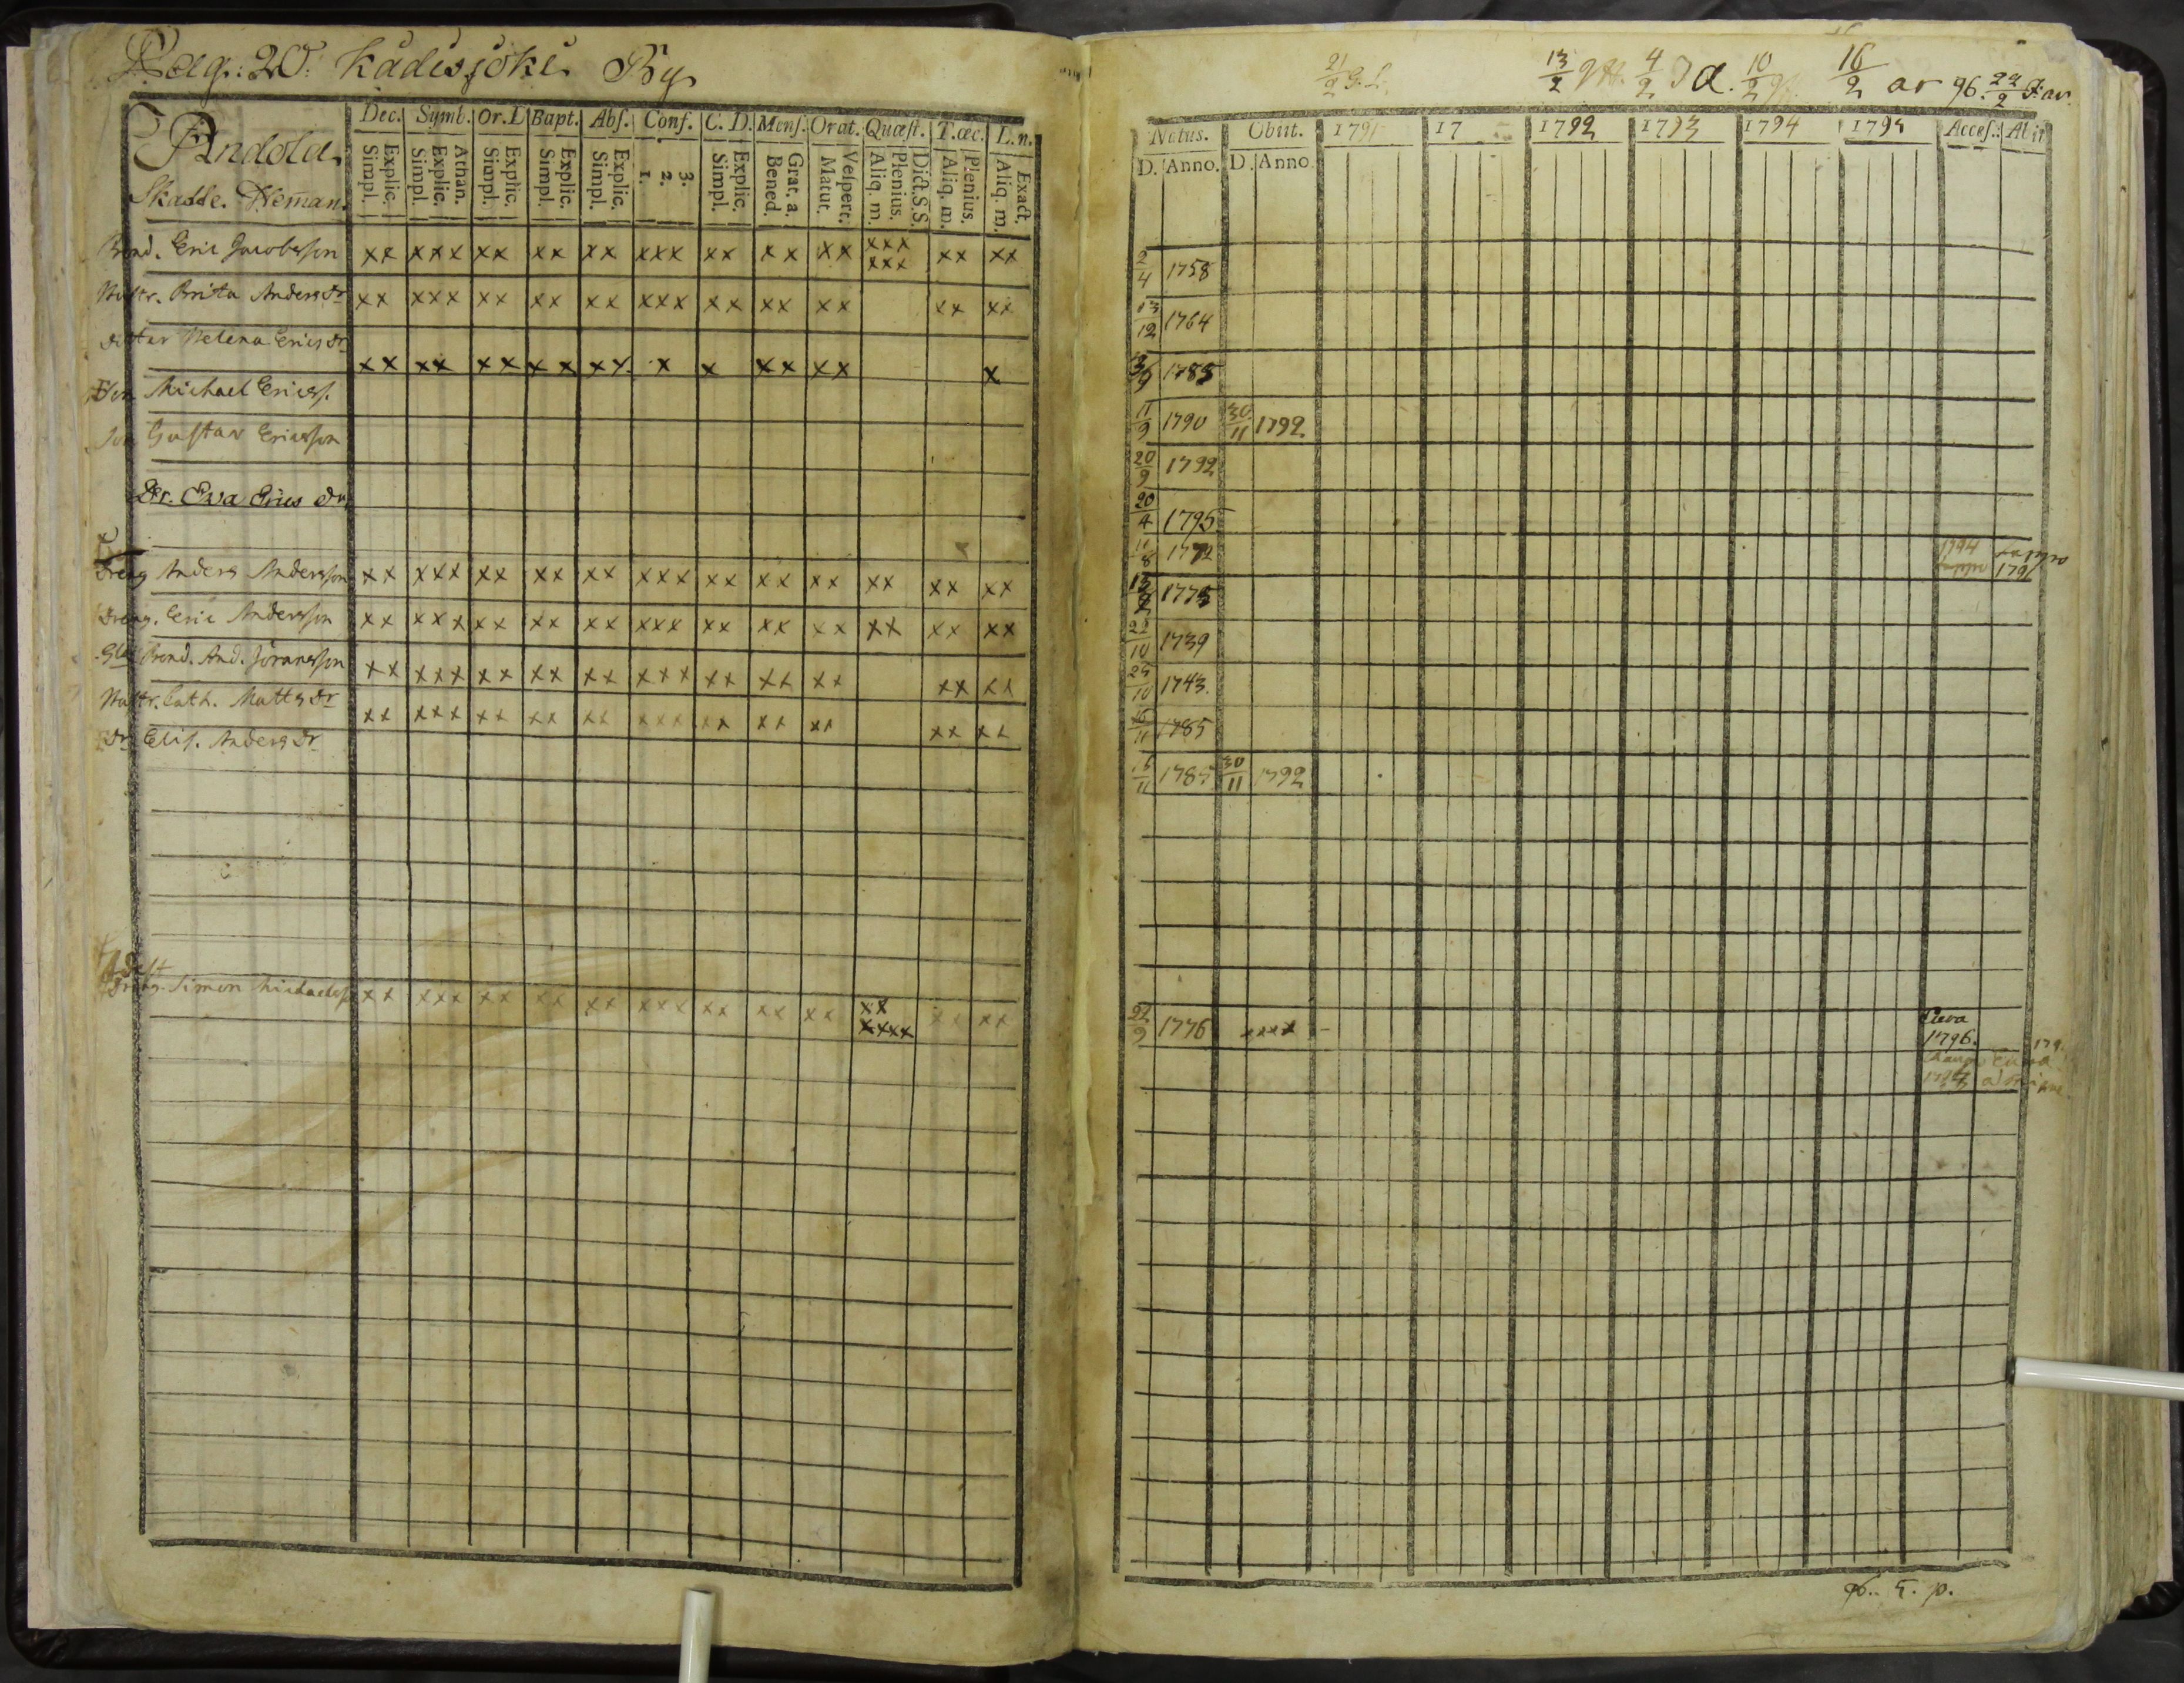 Pag: 20. Kådisjoki By
Andola
Skatte. Heman.
Dec. Symb. Or.D Bapt. Abſ. Conf. C. D. Menſ. Orat. Quæſt. T.œc. L.n.
Explic. Simpl. Athan. Explic. Simpl. Explic. Simpl. Explic. Simpl. Explic. Simpl. 3. 2. 1. Explic. Simpl. Grat. a. Bened. Veſpert. Matut. Dict.S.S. Plenius. Aliq. m. Plenius. Aliq. m. Exact. Aliq. m.
Bond. Eric Jacobsson xx xxx xx xx xx xxx xx xx xx xxx xxx xx xx
Hustr. Brita Anders dr xx xxx xx xx xx xxx xx xx xx xx xx
dotter Helena Erics dr xx xx xx xx xx x x xx xx x
Son Michael Ericss.
Son Gustav Ericsson
Dr. Eva Erics dr
Dreng Anders Andersson xx xxx xx xx xx xxx xx xx xx xx xx xx
Dreng. Eric Andersson xx xxx xx xx xx xxx xx xx xx xx xx xx
Gl. Bond. And. Göransson xx xxx xx xx xx xxx xx xx xx xx xx
Hustr. Cath. Matts dr xx xxx xx xx xx xxx xx xx xx xx xx
Dr Elis. Anders dr
Dreng. Simon Michaelss xx xxx xx xx xx xxx xx xx xx xx xxxx xx xx
21/2 G.L. 13/2 4/2 10/2 16/2 ar 96. 22/2 F. ar.
Natus. Obiit. 1791 17 1792 1793 1794 1795 Acceſ.: Abiit
D. Anno. D. Anno
2/4 1758
13/12 1764
1785
11/9 1790 30/11 1792
20/9 1792
20/4 1795
11/8 1772 1794 1796
1775
10 1739
25/10 1743.
15/11 1785
15/11 1785 30/11 1792
22/9 1776 xxxx Eura 1796.